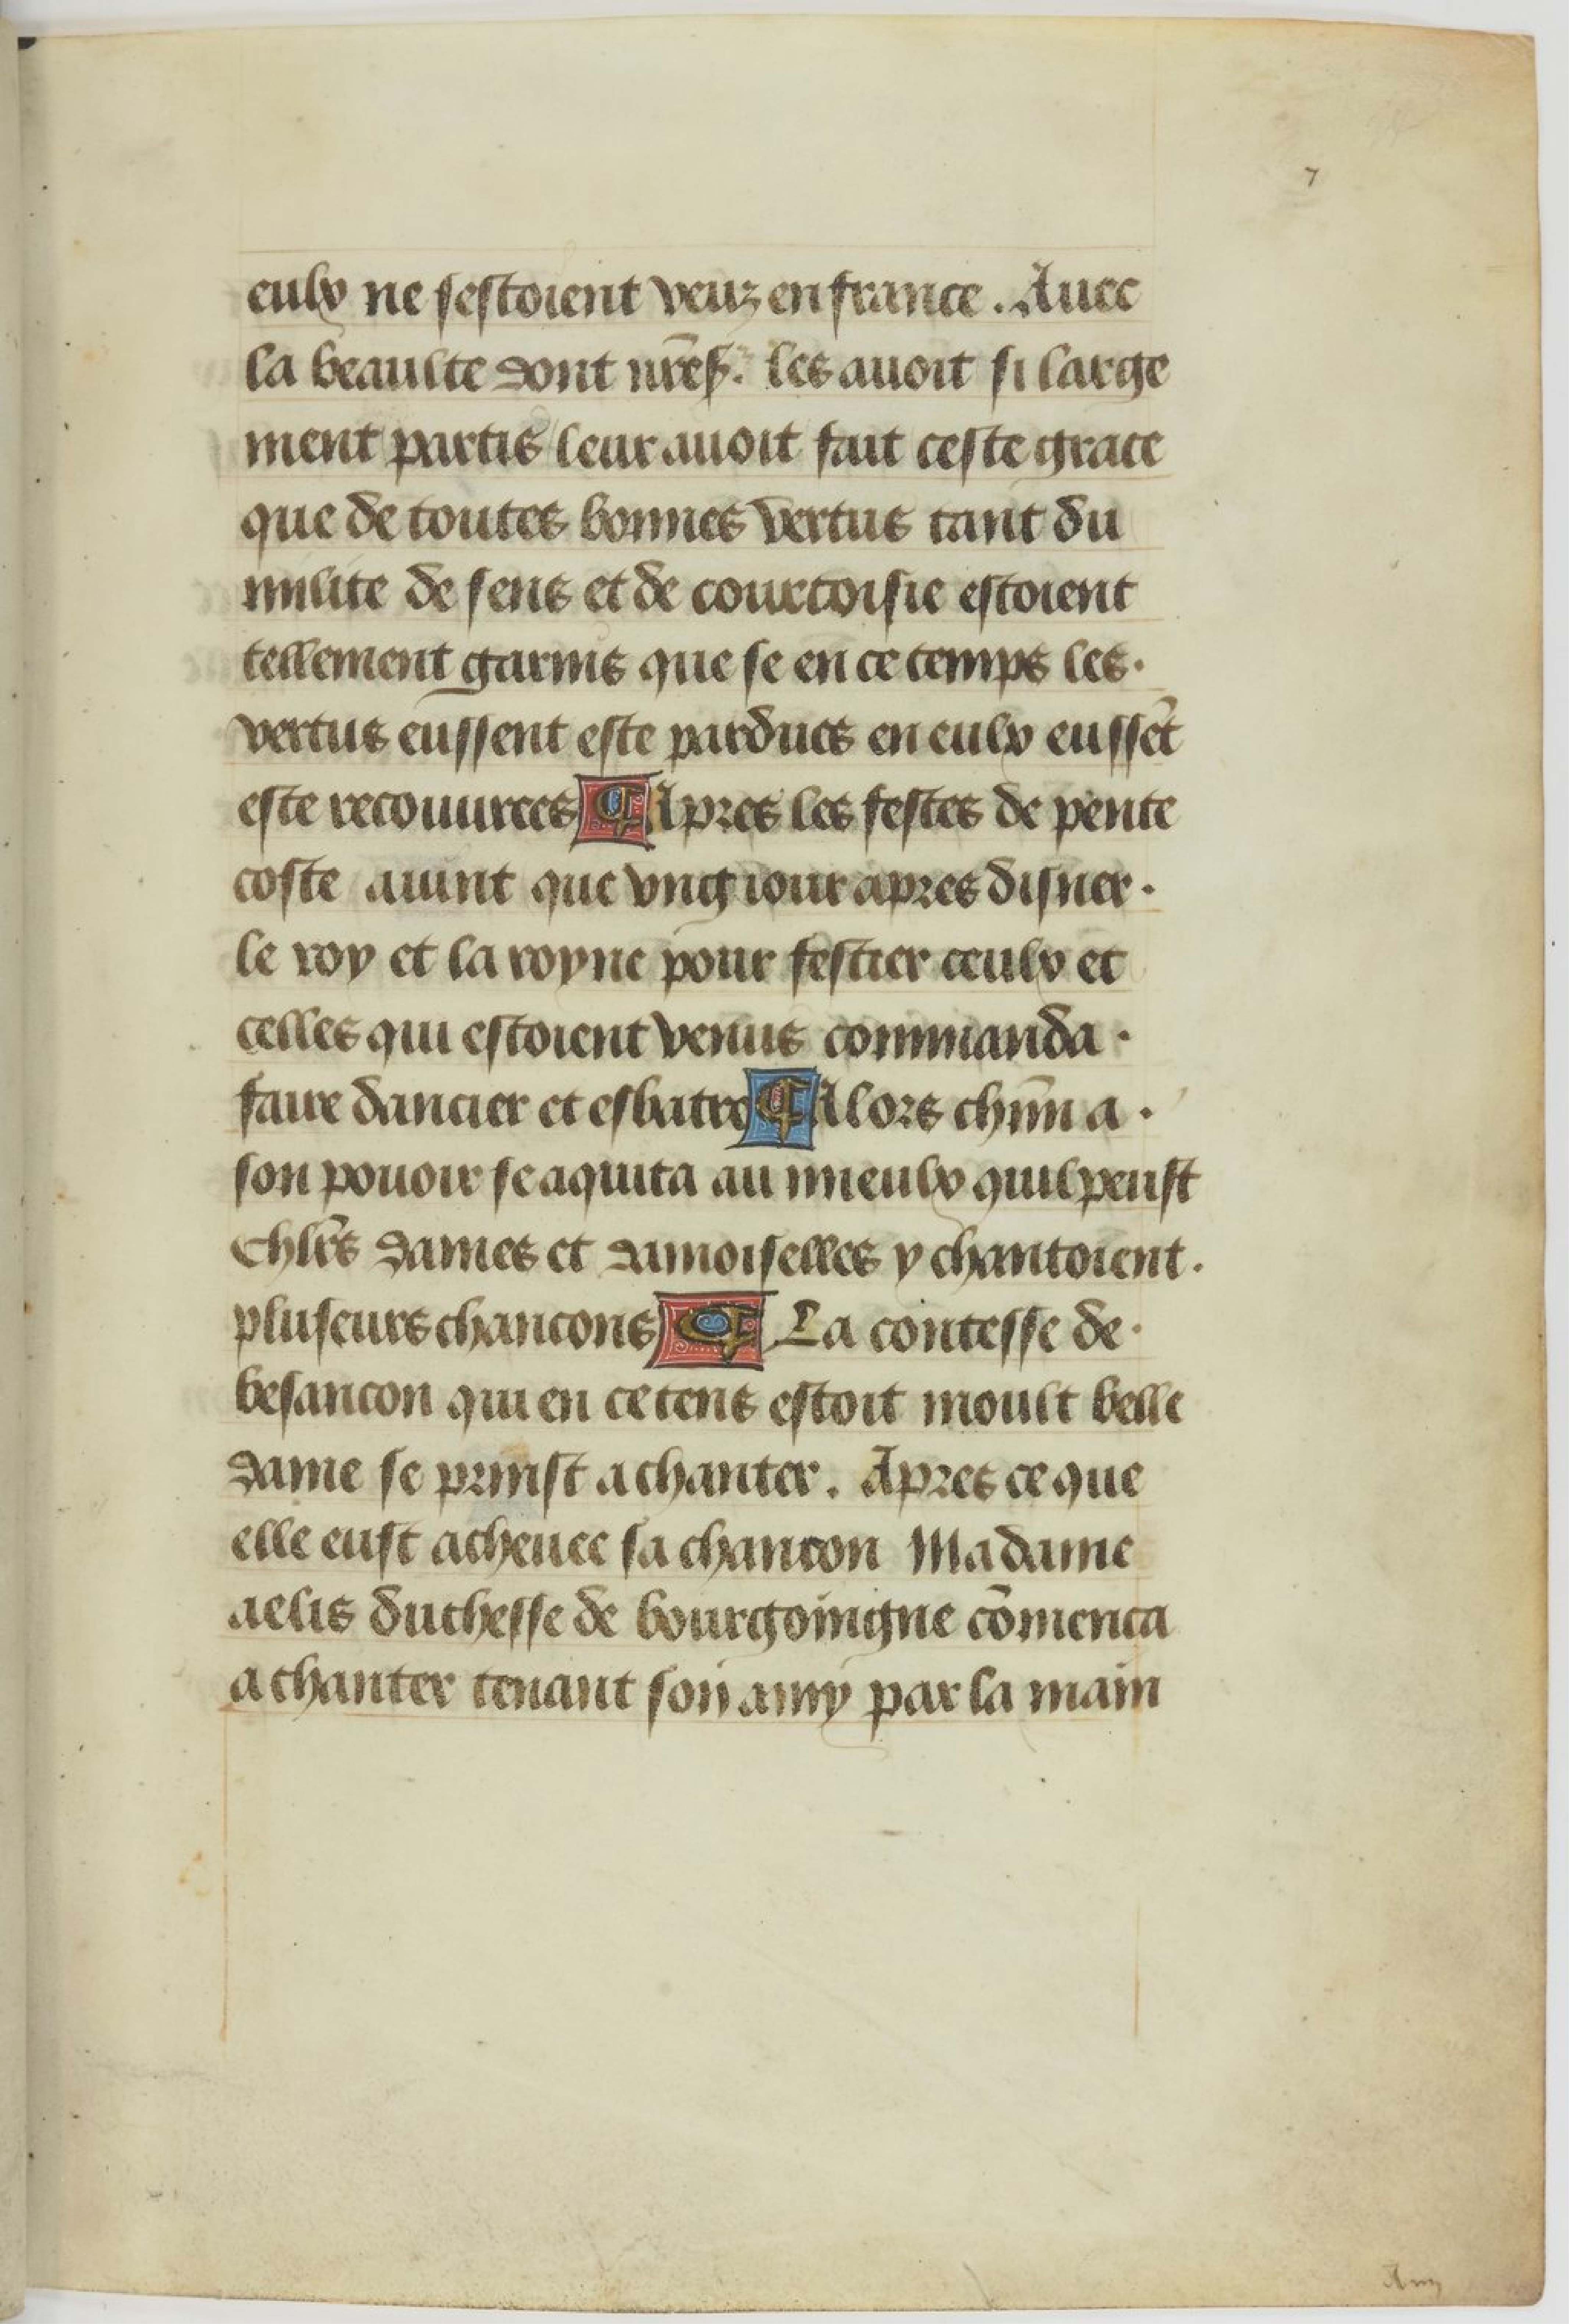 7
eulx ne sestoient veuz en france. Auec
la beaulte dont nr̃eß. les auoit si large
ment partis leur auoit fait ceste grace
que de toutes bonnes vertus tant du
milite de sens et de courtoisie estoient
tellement garnis que se en ce temps les.
vertus eussent este pardues en eulx eussẽt
este recouurees ¶ Apres les festes de pente
coste auint que vng iour apres disner.
le roy et la royne pour festier ceulx et
celles qui estoient venus commanda.
faire dancier et esbatre ¶ Alors chũn a.
son pouoir se aquita au mieulx quil peust
Chlr̃s dames et damoiselles y chantoient.
pluseurs chancons ¶ La contesse de.
besancon qui en ce tens estoit moult belle
dame se prinst a chanter. Apres ce que
elle eust acheuee sa chancon Madame
aelis duchesse de bourgoingne cõmenca
a chanter tenant son amy par la main